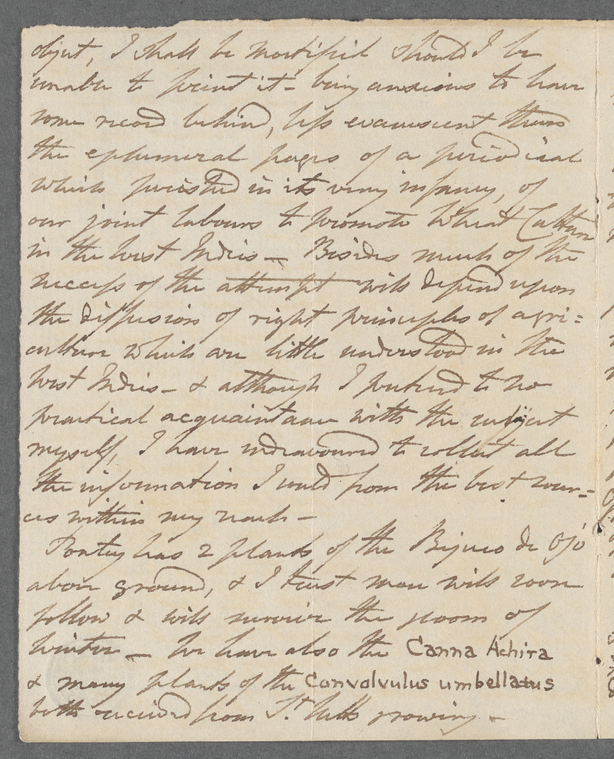 object, I shall be mortified should I be
unable to print it - being anxious to have
some record behind, less evanescent than
the ephemeral pages of a periodical
which perished in its very infancy, of
our joint labours to promote Wheat Culture
in the West Indies - Besides much of the
success of the attempt will depend upon
the diffusion of right principles of agri=
culture which are little understood in the
West Indies - & although I pretend to no
practical acquaintance with the subject
myself, I have endeavoured to collect all
the information I could from the best sour=
ces within my reach -
Pontey has 2 plants of the Bejuco de Ojo
above ground, & I trust more will soon
follow & will survive the gloom of
winter - We have also the Canna Achira
& many plants of the Convolvulus umbellatus
both received from St. growing. -